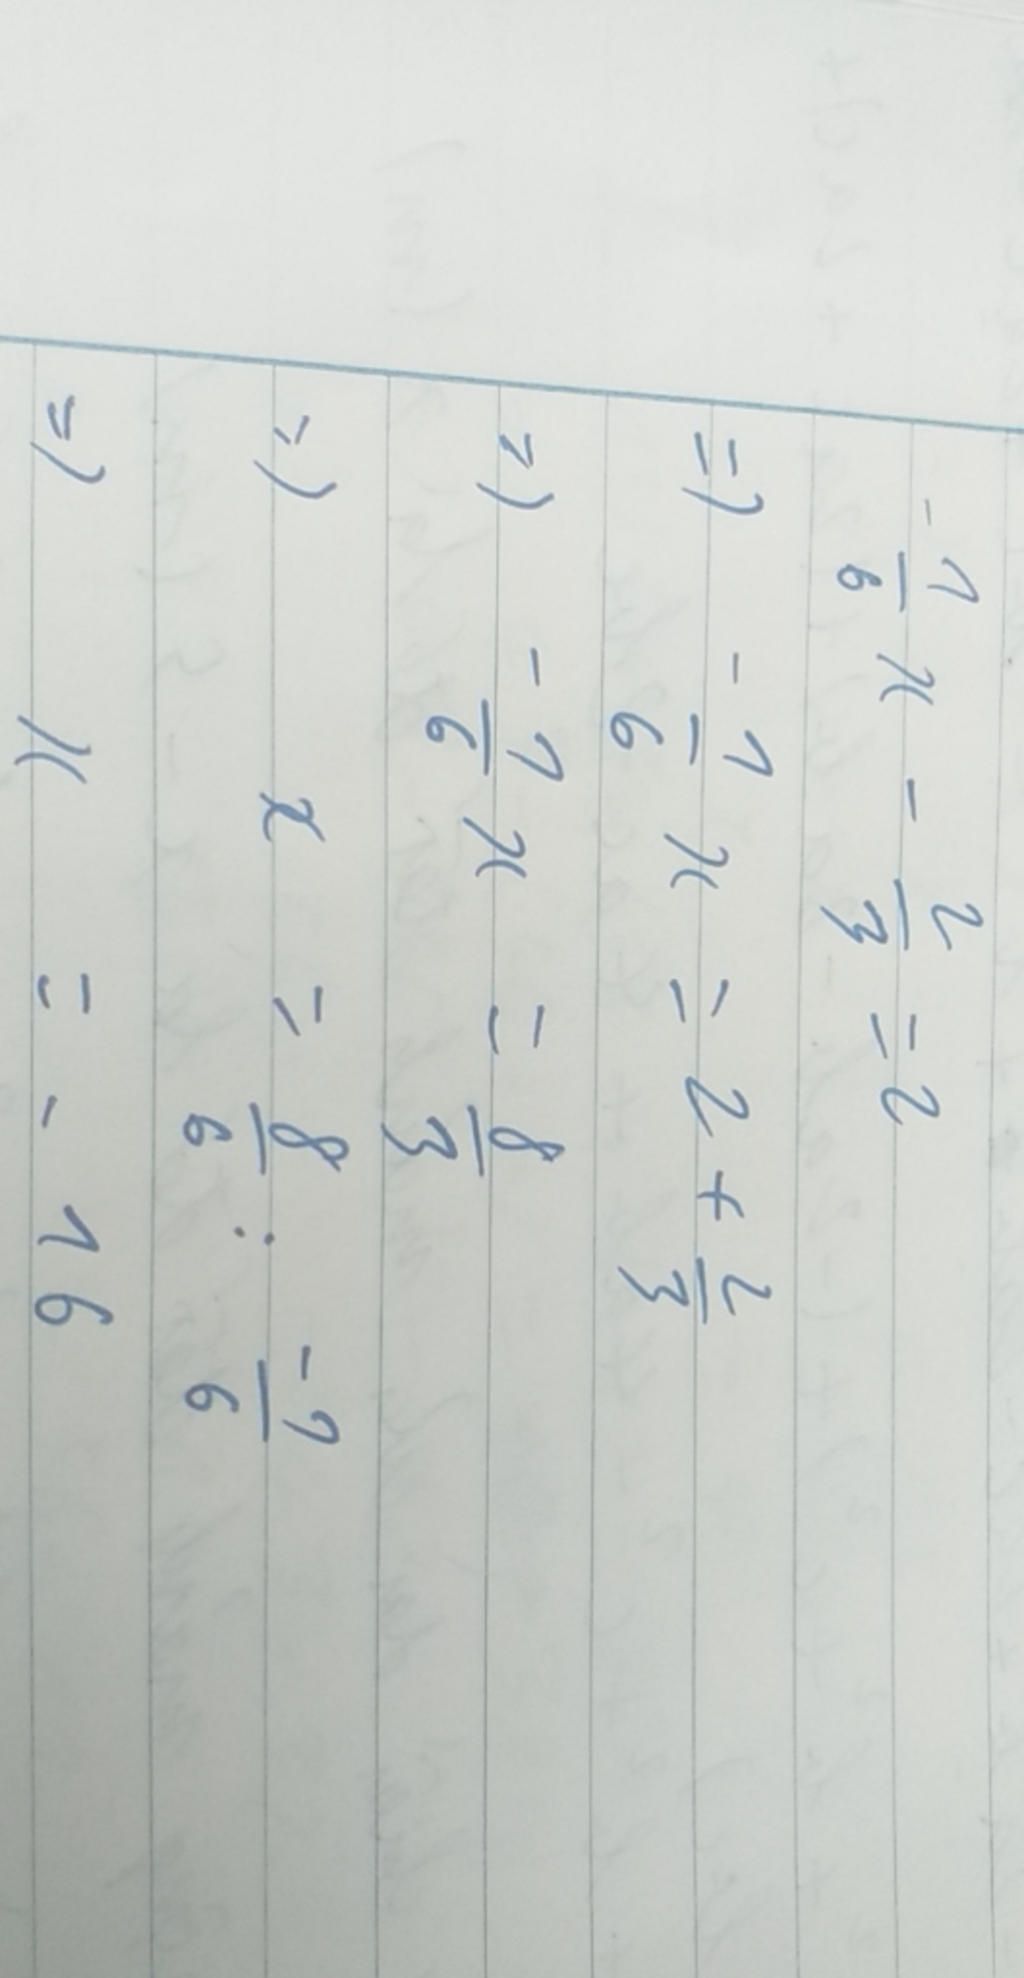 -1/6 x - 2/3 = 2
=) -1/6 x = 2 + 2/3
=) -1/6 x = 8/3
=) x = 8/6 : -1/6
=) x = -16